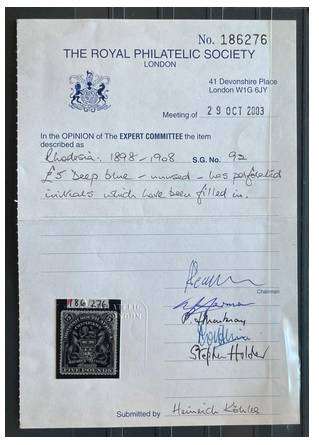 No. 186276
THE ROYAL PHILATELIC SOCIETY
LONDON
41 Devonshire Place
London W1G 6JY
Meeting of 29 OCT 2003
In the OPINION of The EXPERT COMMITTEE the item
described as
Rhodesia. 1898-1908 S.G. No. 92
£5 Deep blue - unused - has perforated
initials which have been filled in.
186276
FIVE POUNDS
Chairman
Stephen Holder
Submitted by Heinrich Köhler